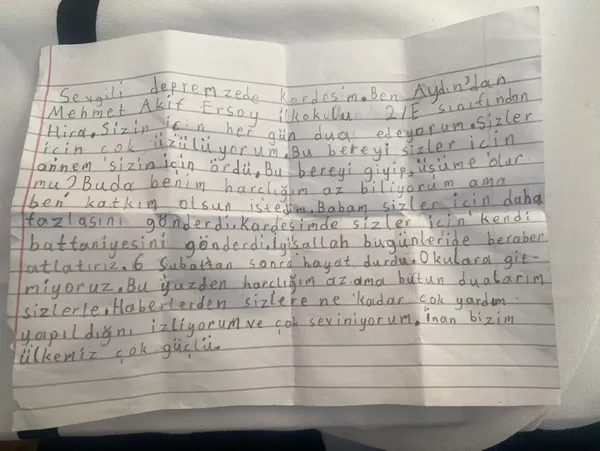 Sevgili depremzede kardeşim. Ben Aydın'dan
Mehmet Akif Ersoy ilkokulu 2/E sınıfından
Hira. Sizin için her gün dua edeyarum. Sizler
için çok üzülüyorum. Bu bereyi sizler için
annem sizin için ördü. Bu bereyi giyip, üşüme olur
mu? Buda benim harçlığım az biliyorum ama
ben katkım olsun istedim. Babam sizler için daha
fazlasını gönderdi. Kardeşimde sizler için kendi
battaniyesini gönderdi. İyşallah bugünleride beraber
atlatırız. 6 Şubattan sonra hayat durdu. Okulara git-
miyoruz. Bu yüzden harclığım az ama bütun dualarım
sizlerle. Haberlerden sizlere ne kadar çok yardım
yapıldığnı izliyorum ve çok seviniyorum. inan bizim
ülkemiz çok güçlü.